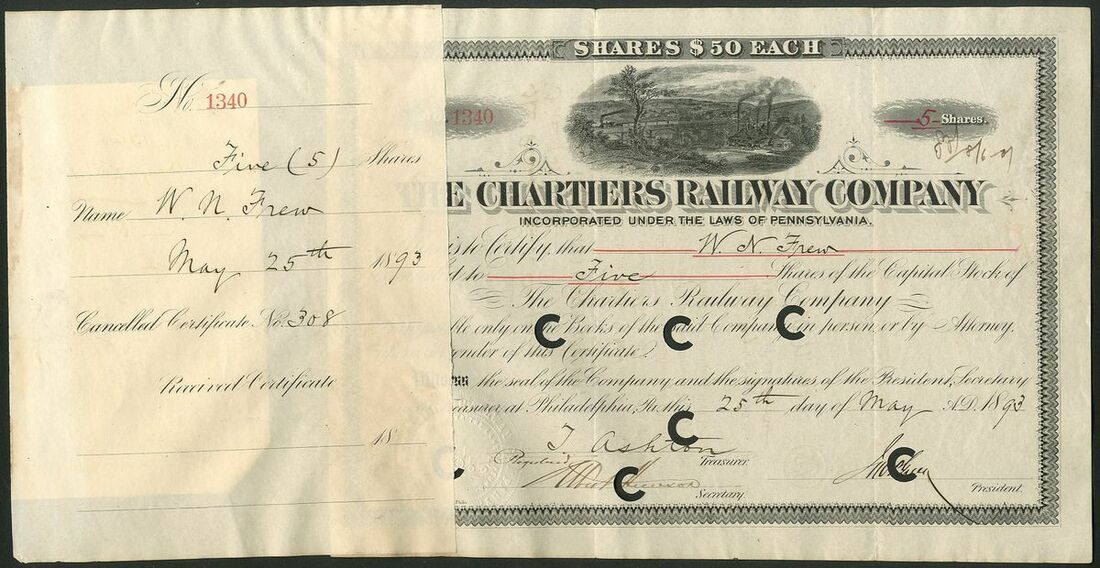 No. 1340
Five (5) Shares
Name W. N. Frew
May 25th 1893
Cancelled Certificate No. 308
Received Certificate
18
SHARES $50 EACH
1340
5 Shares.
E CHARTIERS RAILWAY COMPANY
INCORPORATED UNDER THE LAWS OF PENNSYLVANIA.
is to Certify, that W. N. Frew
d to Five Shares of the Capital Stock of
The Chartiers Railway Company
able only on the Books of the said Company in person, or by Attorney,
render of this Certificate.
the seal of the Company and the signatures of the President, Secretary
Treasurer at Philadelphia, Pa. this 25th day of May A.D. 1893
T Ashton
Registered
Treasurer.
Secretary.
President.
C C C C C C C